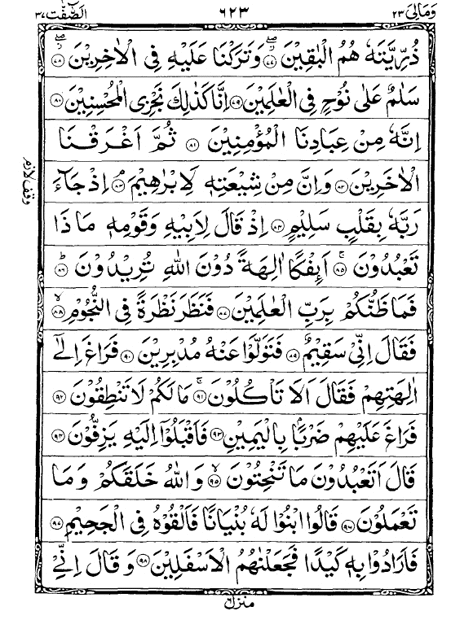 وَمَالِیَ ٢٣ ٦٢٣ الصّٰٓفّٰت ٣٧
ذُرِّيَّتَهٗ هُمُ الْبٰقِيْنَ ۝٧٧ وَتَرَكْنَا عَلَيْهِ فِى الْاٰخِرِيْنَ ۝٧٨
سَلٰمٌ عَلٰى نُوْحٍ فِى الْعٰلَمِيْنَ ۝٧٩ اِنَّا كَذٰلِكَ نَجْزِى الْمُحْسِنِيْنَ ۝٨٠
اِنَّهٗ مِنْ عِبَادِنَا الْمُؤْمِنِيْنَ ۝٨١ ثُمَّ اَغْرَقْنَا
الْاٰخَرِيْنَ ۝٨٢ وَاِنَّ مِنْ شِيْعَتِهٖ لَاِبْرٰهِيْمَ ۝٨٣ اِذْ جَآءَ
رَبَّهٗ بِقَلْبٍ سَلِيْمٍ ۝٨٤ اِذْ قَالَ لِاَبِيْهِ وَقَوْمِهٖ مَاذَا
تَعْبُدُوْنَ ۝٨٥ اَئِفْكًا اٰلِهَةً دُوْنَ اللّٰهِ تُرِيْدُوْنَ ۝٨٦
فَمَا ظَنُّكُمْ بِرَبِّ الْعٰلَمِيْنَ ۝٨٧ فَنَظَرَ نَظْرَةً فِى النُّجُوْمِ ۝٨٨
فَقَالَ اِنِّىْ سَقِيْمٌ ۝٨٩ فَتَوَلَّوْا عَنْهُ مُدْبِرِيْنَ ۝٩٠ فَرَاغَ اِلٰٓى
اٰلِهَتِهِمْ فَقَالَ اَلَا تَاْكُلُوْنَ ۝٩١ مَا لَكُمْ لَا تَنْطِقُوْنَ ۝٩٢
فَرَاغَ عَلَيْهِمْ ضَرْبًۢا بِالْيَمِيْنِ ۝٩٣ فَاَقْبَلُوْٓا اِلَيْهِ يَزِفُّوْنَ ۝٩٤
قَالَ اَتَعْبُدُوْنَ مَا تَنْحِتُوْنَ ۝٩٥ وَاللّٰهُ خَلَقَكُمْ وَمَا
تَعْمَلُوْنَ ۝٩٦ قَالُوا ابْنُوْا لَهٗ بُنْيَانًا فَاَلْقُوْهُ فِى الْجَحِيْمِ ۝٩٧
فَاَرَادُوْا بِهٖ كَيْدًا فَجَعَلْنٰهُمُ الْاَسْفَلِيْنَ ۝٩٨ وَقَالَ اِنِّىْ
منزل ٦
وقف لازم